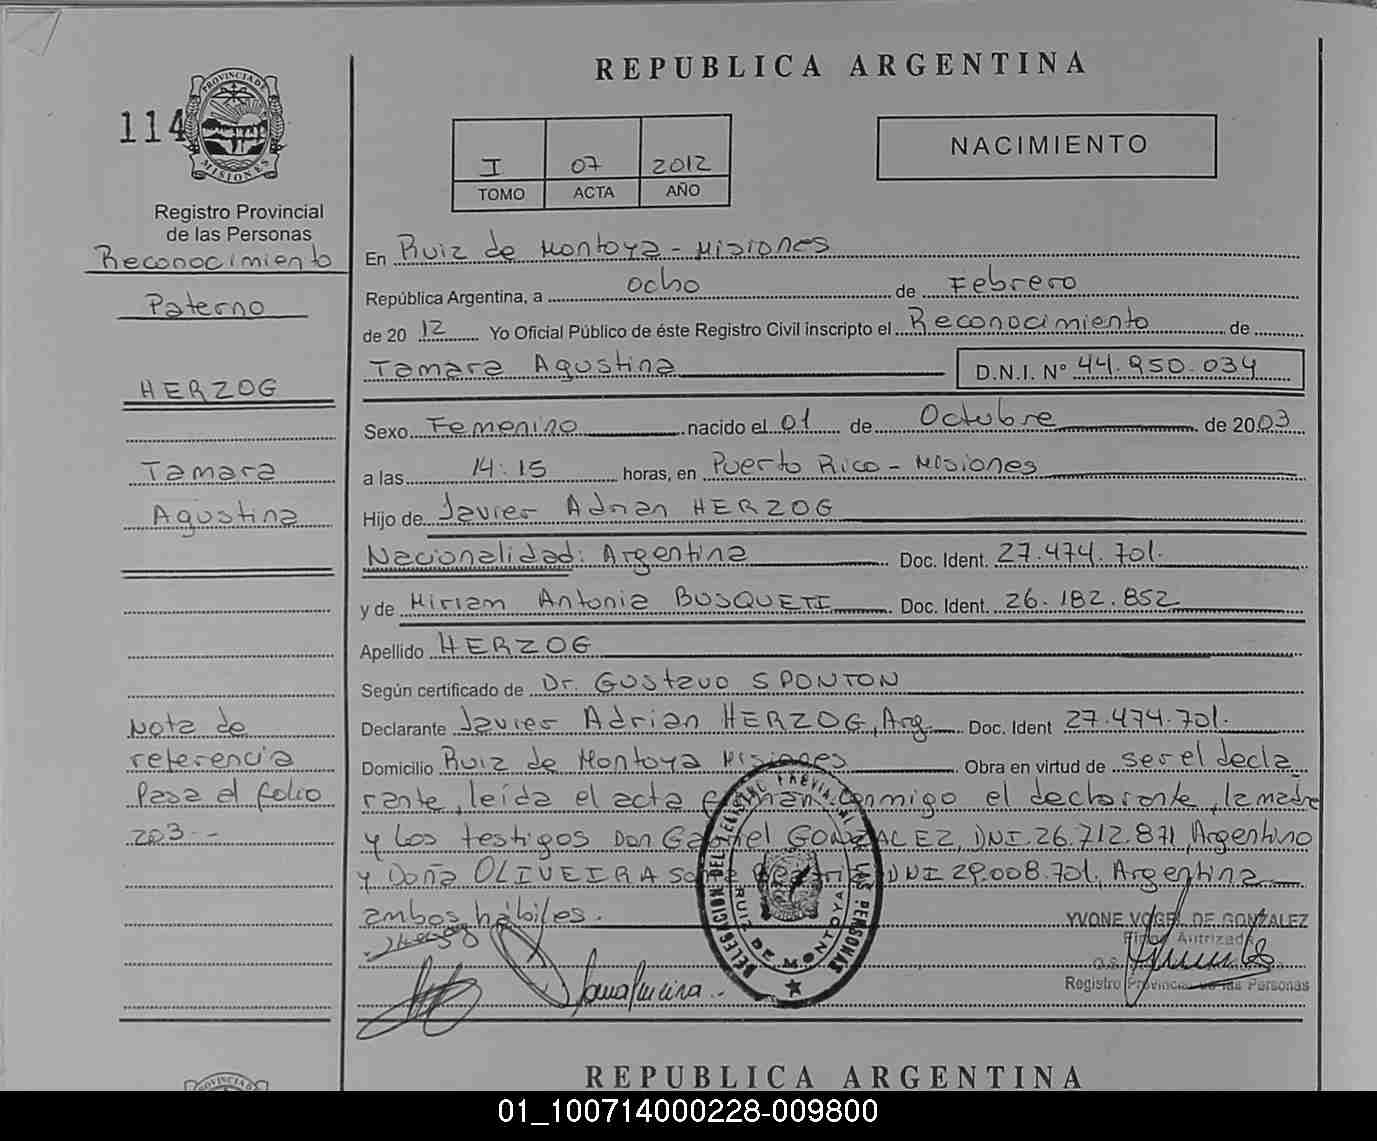 REPUBLICA ARGENTINA
114
PROVINCIA DE
MISIONES
Registro Provincial
de las Personas
I 07 2012
TOMO ACTA AÑO
NACIMIENTO
Reconocimiento
Paterno
HERZOG
Tamara
Agustina
Nota de
referencia
Pasa al folio
203.-
En Ruiz de Montoya - Misiones
República Argentina, a ocho de Febrero
de 2012 Yo Oficial Público de éste Registro Civil inscripto el Reconocimiento de
Tamara Agustina D.N.I. N° 44.950.034
Sexo Femenino nacido el 01 de Octubre de 2003
a las 14:15 horas, en Puerto Rico - Misiones
Hijo de Javier Adrian HERZOG
Nacionalidad: Argentina Doc. Ident. 27.474.701.
y de Miriam Antonia BUSQUETI Doc. Ident. 26.182.852
Apellido HERZOG
Según certificado de Dr. Gustavo SPONTON
Declarante Javier Adrian HERZOG, Arg. Doc. Ident 27.474.701.
Domicilio Ruiz de Montoya Misiones Obra en virtud de ser el decla
rante, leída el acta firman conmigo el declarante, la madre
y los testigos Don Gabriel GONZALEZ, DNI.26.712.871, Argentino
y Doña OLIVEIRA DNI 29.008.701, Argentina
ambos hábiles.
DELEGACION DEL REGISTRO PROVINCIAL DE LAS PERSONAS
RUIZ DE MONTOYA
YVONE VOGEL DE GONZALEZ
Firma Autrizada
Registro Provincial de las Personas
REPUBLICA ARGENTINA
PROVINCIA DE
01_100714000228-009800